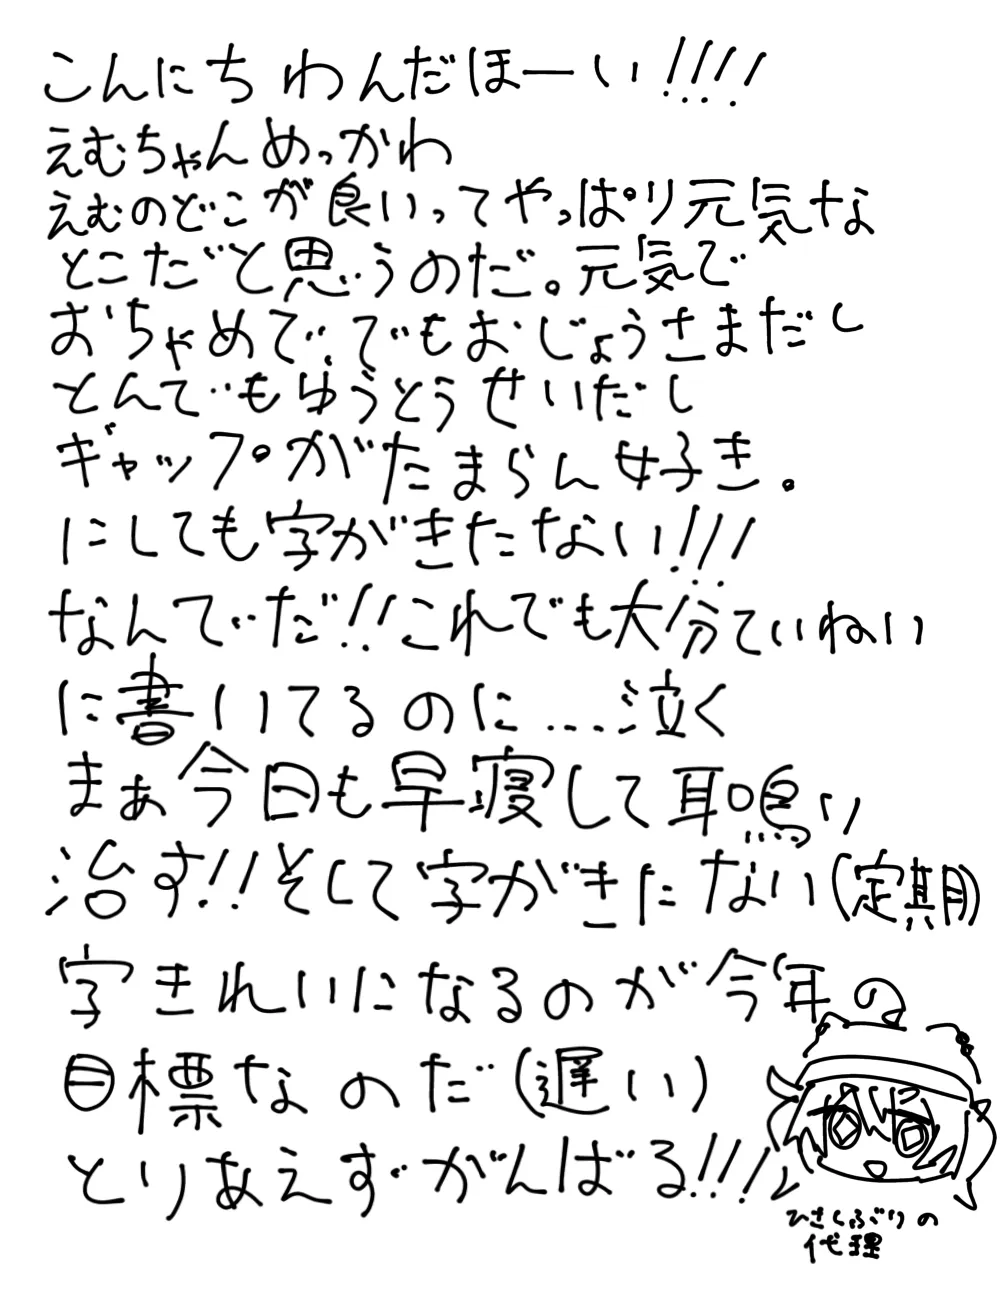 こんにちわんだほーい!!!!
えむちゃんめっかわ
えむのどこが良いってやっぱり元気な
とこだと思うのだ。元気で
おちゃめで、でもおじょうさまだし
とんでもゆうとうせいだし
ギャップがたまらん好き。
にしても字がきたない!!!
なんでだ!!これでも大分ていねい
に書いてるのに....泣く
まぁ今日も早寝して耳鳴り
治す!!そして字がきたない(定期)
字きれいになるのが今年の
目標なのだ(遅い)
とりあえずがんばる!!!!
ひさしぶりの
代理